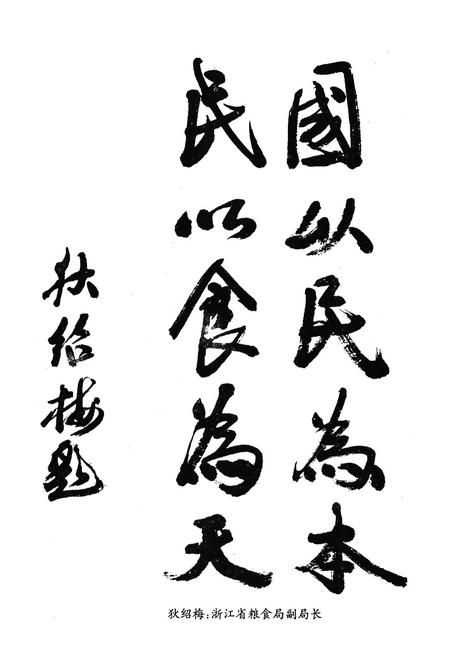 國以民為本
民以食為天
狄绍梅題
狄绍梅：浙江省粮食局副局长